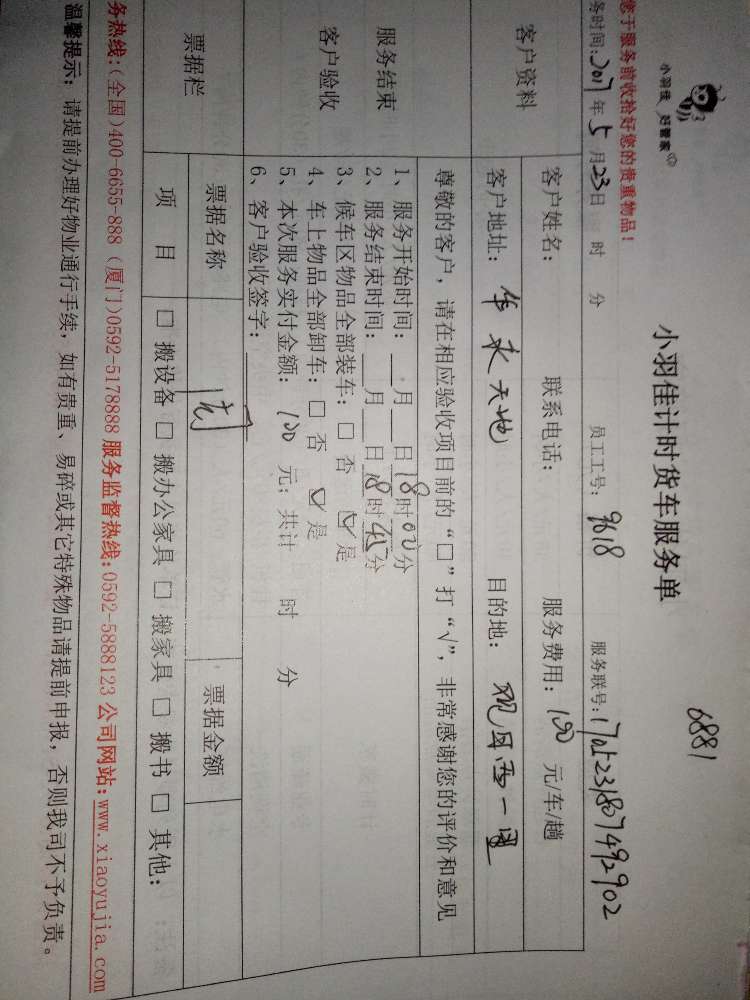 小羽佳 好管家
6881
小羽佳计时货车服务单
您于服务前收拾好您的贵重物品！
务时间：2017年5月23日 时 分 员工工号：9618 服务联号：1705231807492902
客户资料
客户姓名： 联系电话： 服务费用：100 元/车/趟
客户地址： 天地 目的地： 西一里
服务结束
客户验收
尊敬的客户，请在相应验收项目前的“□”打“√”，非常感谢您的评价和意见
1、服务开始时间：___月___日18时00分
2、服务结束时间：___月___日18时45分
3、候车区物品全部装车：□ 否 ☑ 是
4、车上物品全部卸车：□ 否 ☑ 是
5、本次服务实付金额：100 元；共计 时 分
6、客户验收签字：
票据栏
票据名称 票据金额
项 目 □ 搬设备 □ 搬办公家具 □ 搬家具 □ 搬书 □ 其他：
务热线：(全国)400-6655-888 (厦门)0592-5178888 服务监督热线：0592-5888123 公司网站：www.xiaoyujia.com
温馨提示：请提前办理好物业通行手续，如有贵重、易碎或其它特殊物品请提前申报，否则我司不予负责。